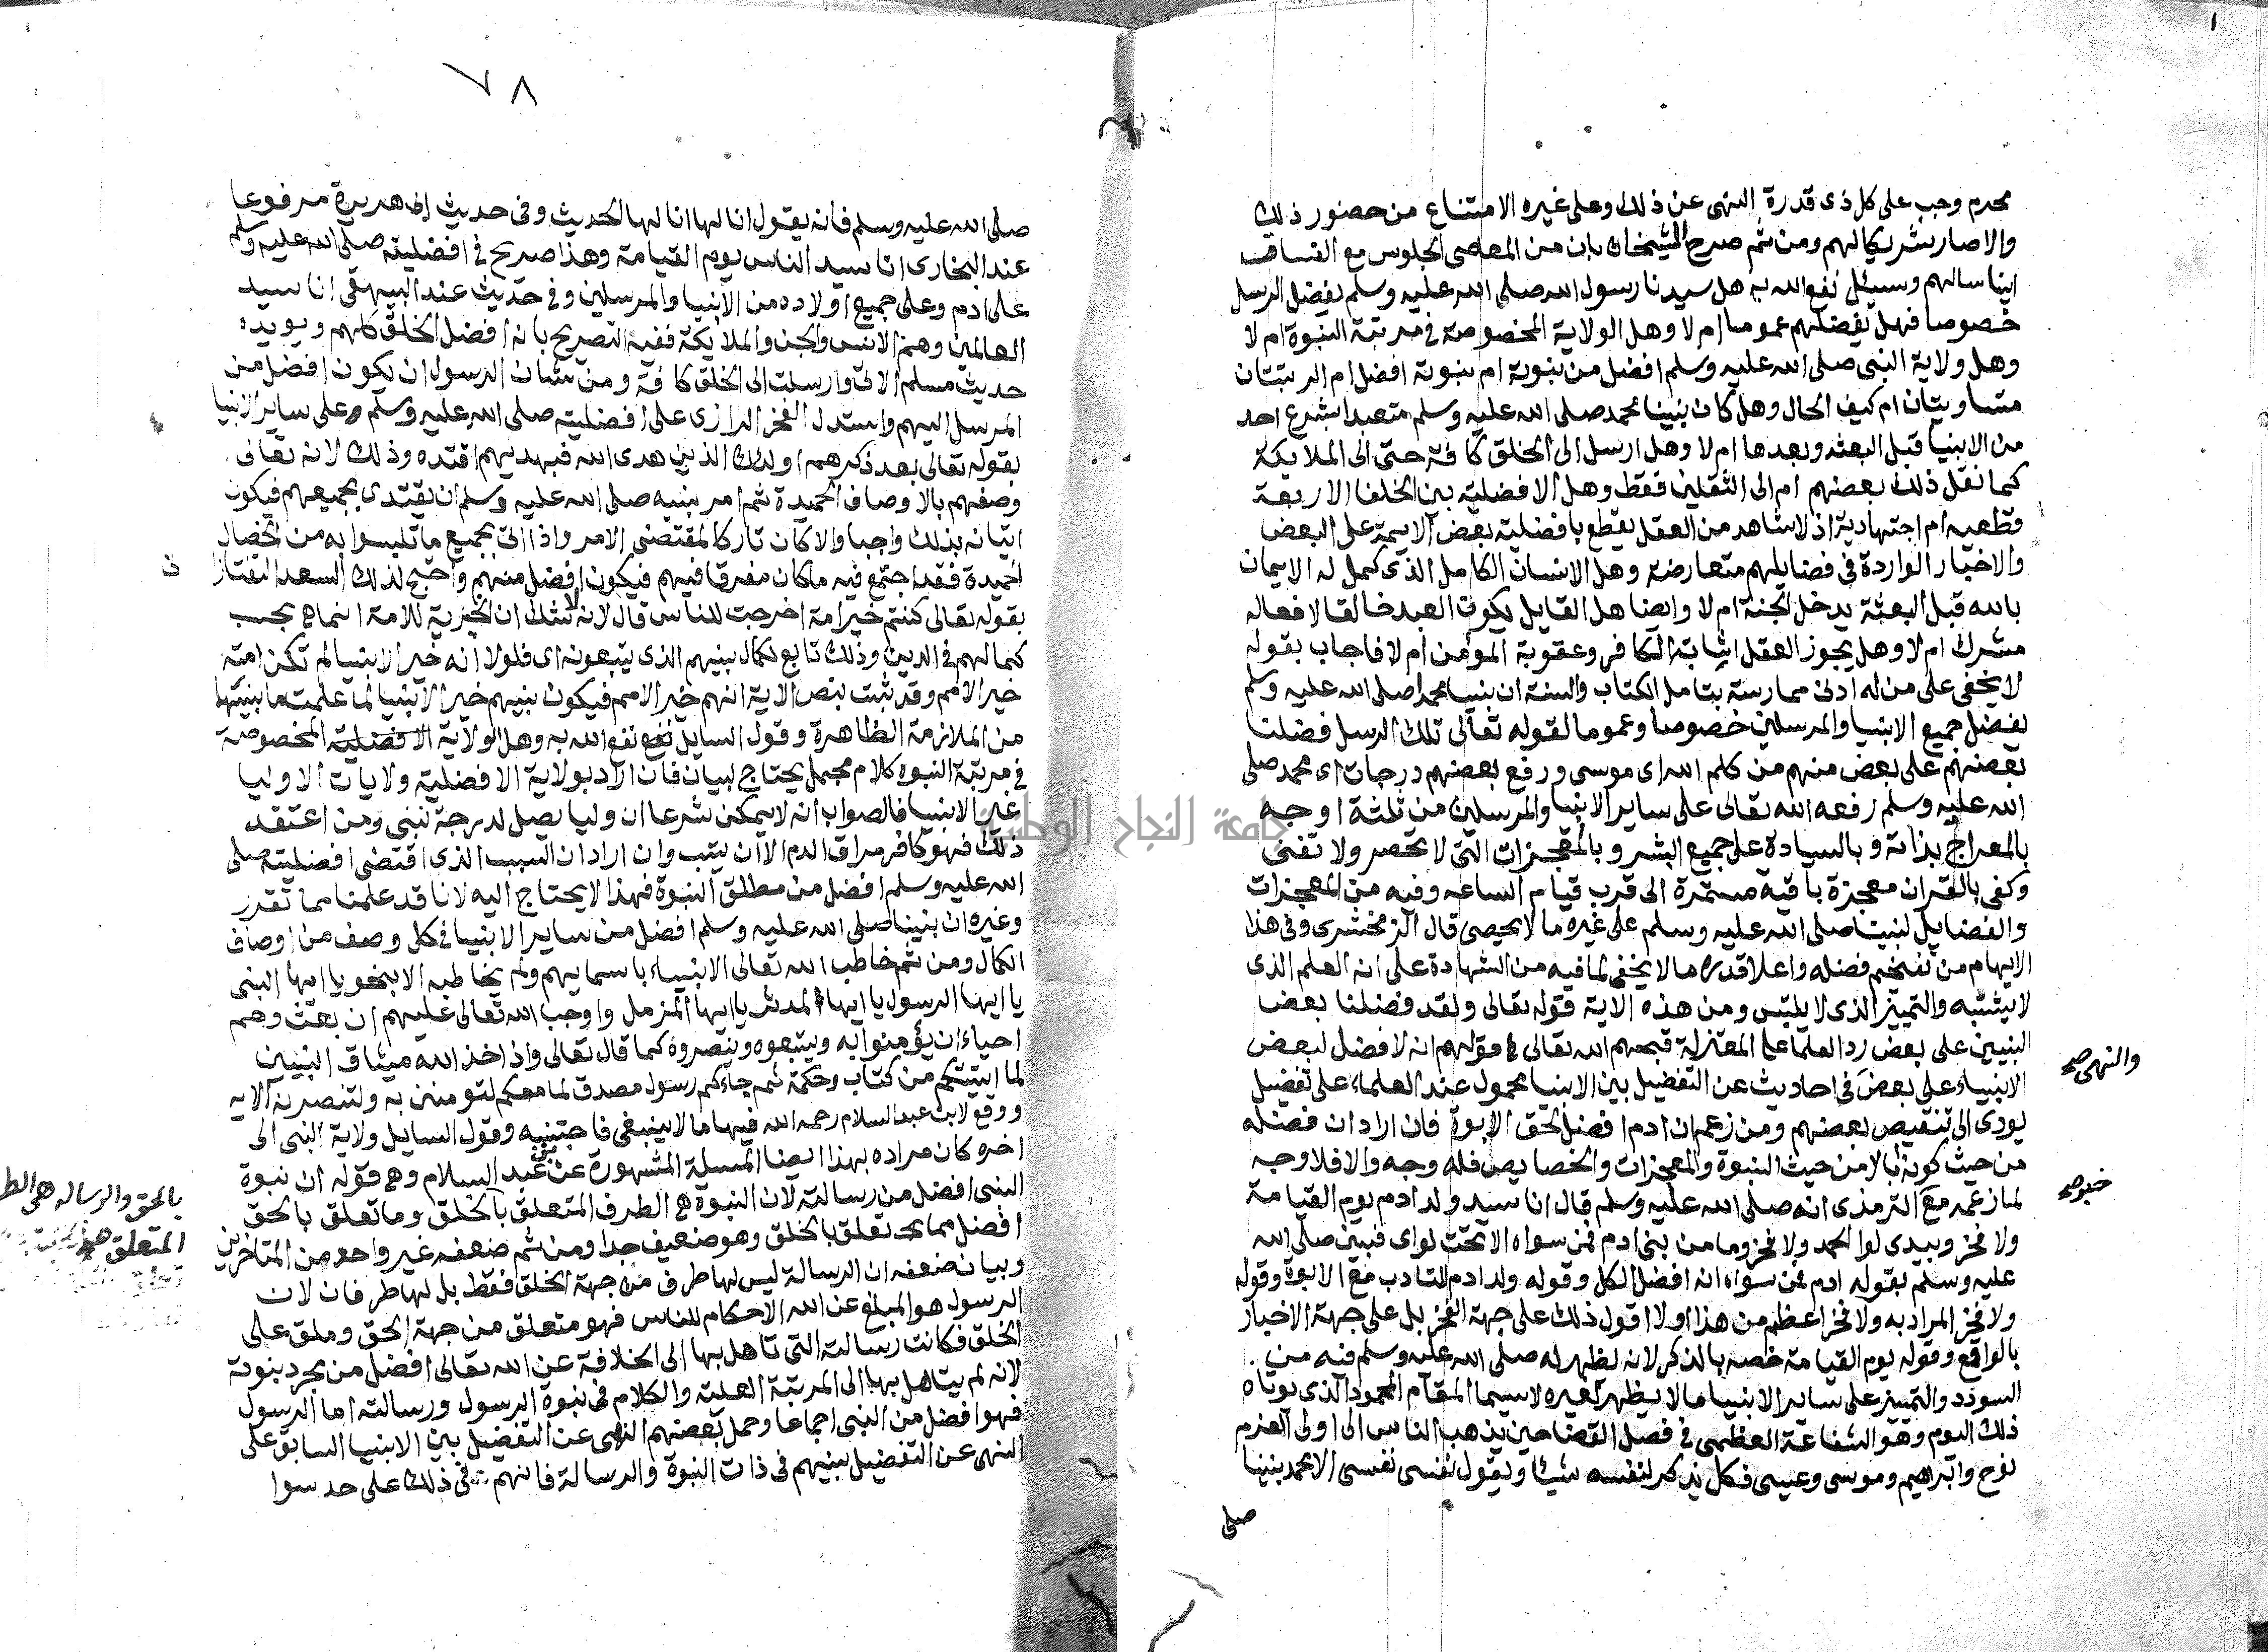 ١
محرم وجب على كل ذى قدرة النهى عن ذلك وعلى غيره الامتناع من حضور ذلك
والاصار شريكا لهم ومن ثم صرح الشيخان بان من المعاصى الجلوس مع الفساق
ايناسا لهم وسيئل نفع الله به هل سيدنا رسول الله صلى الله عليه وسلم يفضل الرسل
خصوصا فهل يفضلهم عموما ام لا وهل الولاية المخصوصة فى مرتبة النبوة ام لا
وهل ولاية النبى صلى الله عليه وسلم افضل من نبوته ام نبوته افضل ام الرتبتان
متساويتان ام كيف الحال وهل كان نبينا محمد صلى الله عليه وسلم متعبدا بشرع احد
من الانبيا قبل البعثه وبعدها ام لا وهل ارسل الى الخلق كافة حتى الى الملايكة
كما نقل ذلك بعضهم ام الى الثقلين فقط وهل الافضلية بين الخلفا الاربعة
قطعيه ام اجتهادية اذ لا شاهد من العقل يقطع بافضلية بعض الايمة على البعض
والاخبار الواردة فى فضايلهم متعارضة وهل الانسان الكامل الذى كمل له الايمان
بالله قبل البعثة يدخل الجنة ام لا وايضا هل القايل يكون العبد خالقا لافعاله
مشرك ام لا وهل يجوز العقل اثابة الكافر وعقوبة المؤمن ام لا فاجاب بقوله
لا يخفى على من له ادنى ممارسة بتامل الكتاب والسنة ان نبينا محمدا صلى الله عليه وسلم
يفضل جميع الانبيا والمرسلين خصوصا وعموما لقوله تعالى تلك الرسل فضلنا
بعضهم على بعض منهم من كلم الله اى موسى ورفع بعضهم درجات اى محمد صلى
الله عليه وسلم رفعه الله تعالى على ساير الانبيا والمرسلين من ثلثة اوجه
بالمعراج بذاته وبالسيادة على جميع البشر وبالمعجزات التى لا تحصر ولا تفنى
وكفى بالقران معجزة باقية مستمرة الى قرب قيام الساعه وفيه من المعجزات
والفضايل لنبينا صلى الله عليه وسلم على غيره ما لا يحصى قال الزمخشرى وفى هذا
الايهام من تفخيم فضله واعلا قدره ما لا يخفى لما فيه من الشهادة على انه العلم الذى
لا يشتبه والتمييز الذى لا يلتبس ومن هذه الاية قوله تعالى ولقد فضلنا بعض
النبيين على بعض رد العلما على المعتزلة قبحهم الله تعالى فى قولهم انه لا فضل لبعض
والنهى صح
الانبياء على بعض فى احاديث عن التفضيل بين الانبيا محمول عند العلماء على تفضيل
يودى الى تنقيص بعضهم ومن زعم ان ادم افضل لحق الابوة فان اراد ان فضله
من حيث كونه ابا لا من حيث النبوة والمعجزات والخصايص فله وجه والا فلا وجه
لما زعمه مع الترمذى انه صلى الله عليه وسلم قال انا سيد ولد ادم يوم القيامة
ولا فخر وبيدى لوا الحمد ولا فخر وما من بنى ادم فمن سواه الا تحت لواى فبين صلى الله
عليه وسلم بقوله ادم فمن سواه انه افضل الكل وقوله ولد ادم للتادب مع الابوة وقوله
ولا فخر المراد به ولا فخر اعظم من هذا او لا اقول ذلك على جهة الفخر بل على جهة الاخبار
بالواقع وقوله يوم القيامة خصه بالذكر لانه يظهر له صلى الله عليه وسلم فيه من
السودد والتميز على ساير الانبيا ما لا يظهر لغيره لاسيما المقام المحمود الذى يوتاه
ذلك اليوم وهو الشفاعة العظمى فى فصل القضا حين يذهب الناس الى اولى العزم
نوح وابراهيم وموسى وعيسى فكل يذكر لنفسه شيئا ويقول نفسى نفسى الا محمد نبينا
صلى
٧٨
صلى الله عليه وسلم فانه يقول انا لها انا لها الحديث وفى حديث ابى هريرة مرفوعا
عند البخارى انا سيد الناس يوم القيامة وهذا صريح فى افضليته صلى الله عليه وسلم
على ادم وعلى جميع اولاده من الانبيا والمرسلين وفى حديث عند البيهقى انا سيد
العالمين وهم الانس والجن والملايكة ففيه التصريح بانه افضل الخلق كلهم ويويده
حديث مسلم الاتى وارسلت الى الخلق كافة ومن شان الرسول ان يكون افضل من
المرسل اليهم واستدل الفخر الرازى على افضليته صلى الله عليه وسلم على ساير الانبيا
بقوله تعالى بعد ذكرهم اولئك الذين هدى الله فبهديهم اقتده وذلك لانه تعالى
وصفهم بالاوصاف الحميدة ثم امر نبيه صلى الله عليه وسلم ان يقتدى بجميعهم فيكون
اتيانه بذلك واجبا والا كان تاركا لمقتضى الامر واذا اتى بجميع ما تلبسوا به من الخصال
الحميدة فقد اجتمع فيه ما كان مفرقا فيهم فيكون افضل منهم واحتج لذلك السعد التفتازا
نى
بقوله تعالى كنتم خير امة اخرجت للناس قال لانه لا شك ان الخيرية للامة انما هى بحسب
كمالهم فى الدين وذلك تابع لكمال نبيهم الذى يتبعونه اى فلولا انه خير الانبيا لم تكن امته
خير الامم وقد ثبت بنص الاية انهم خير الامم فيكون نبيهم خير الانبيا لما علمت ما بينهما
من الملازمة الظاهرة وقول السايل نفع نفع الله به وهل الولاية الافضلية المخصوصة
فى مرتبة النبوة كلام مجمل يحتاج لبيان فان اراد بولاية الافضلية ولايات الاوليا
غير الانبيا فالصواب انه لا يمكن شرعا ان وليا يصل لدرجة نبى ومن اعتقد
ذلك فهو كافر مراق الدم الا ان يتب وان اراد ان السبب الذى اقتضى افضليته صلى
الله عليه وسلم افضل من مطلق النبوة فهذا لا يحتاج اليه لانا قد علمنا مما تقرر
وغيره ان نبينا صلى الله عليه وسلم افضل من ساير الانبيا فى كل وصف من اوصاف
الكمال ومن ثم خاطب الله تعالى الانبياء باسمايهم ولم يخاطبه الا بنحو يا ايها النبى
يا ايها الرسول يا ايها المدثر يا ايها المزمل واوجب الله تعالى عليهم ان بعث وهم
احياء ان يؤمنوا به ويتبعوه وينصروه كما قال تعالى واذ اخذ الله ميثاق النبيين
لما اتيتكم من كتاب وحكمة ثم جاءكم رسول مصدق لما معكم لتومنن به ولتنصرنه الايه
ووقع لابن عبد السلام رحمه الله فيها ما لا ينبغى فاجتنبه وقول السايل ولاية النبى الى
اخره كان مراده بهذا ايضا المسيلة المشهورة عن ابن عبد السلام وهى قوله ان نبوة
النبى افضل من رسالته لان النبوة هى الطرف المتعلق بالخلق وما تعلق بالحق
بالحق والرساله هى الط
المتعلق
افضل مما تعلق بالخلق وهو ضعيف جدا ومن ثم ضعفه غير واحد من المتاخرين
وبيان ضعفه ان الرسالة ليس لها طرف من جهة الخلق فقط بل لها طرفان لان
الرسول هو المبلغ عن الله الاحكام للناس فهو متعلق من جهة الحق وملق على
الخلق فكانت رسالته التى تاهل بها الى الخلافة عن الله تعالى افضل من مجرد نبوته
لانه لم يتاهل بها الى المرتبة العلية والكلام فى نبوة الرسول ورسالته اما الرسول
فهو افضل من النبى اجماعا وحمل بعضهم النهى عن التفضيل بين الانبيا السابق على
النهى عن التفضيل بينهم فى ذات النبوة والرسالة فانهم فى ذلك على حد سوا
جامعة النجاح الوطنية